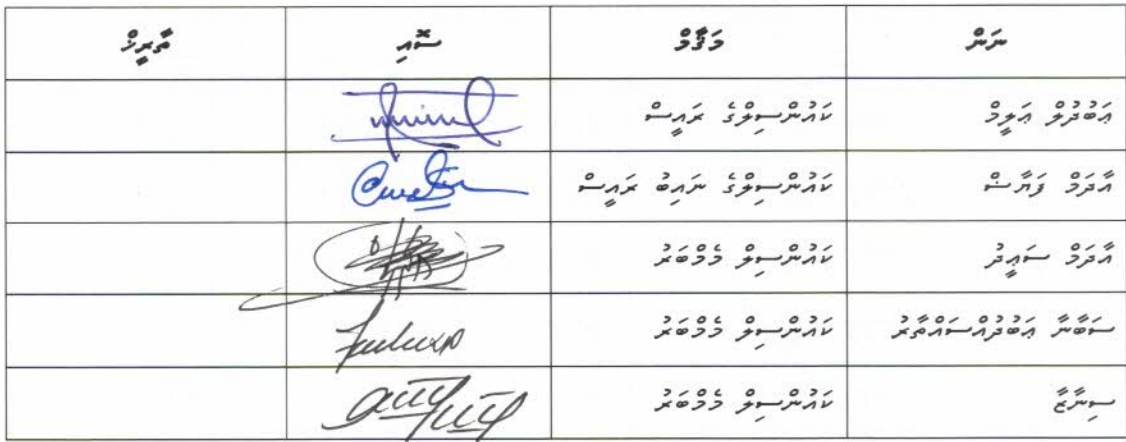 ނަން މަޤާމް ސޮއި ތާރީޚް
ޢަބުދުލް ޢަލީމް ކައުންސިލްގެ ރައީސް
އާދަމް ފަޔާޟް ކައުންސިލްގެ ނައިބު ރައީސް
އާދަމް ސަޢީދު ކައުންސިލް މެމްބަރު
ސަބާނާ ޢަބުދުއްސައްތާރު ކައުންސިލް މެމްބަރު
ސިނާޒާ ކައުންސިލް މެމްބަރު